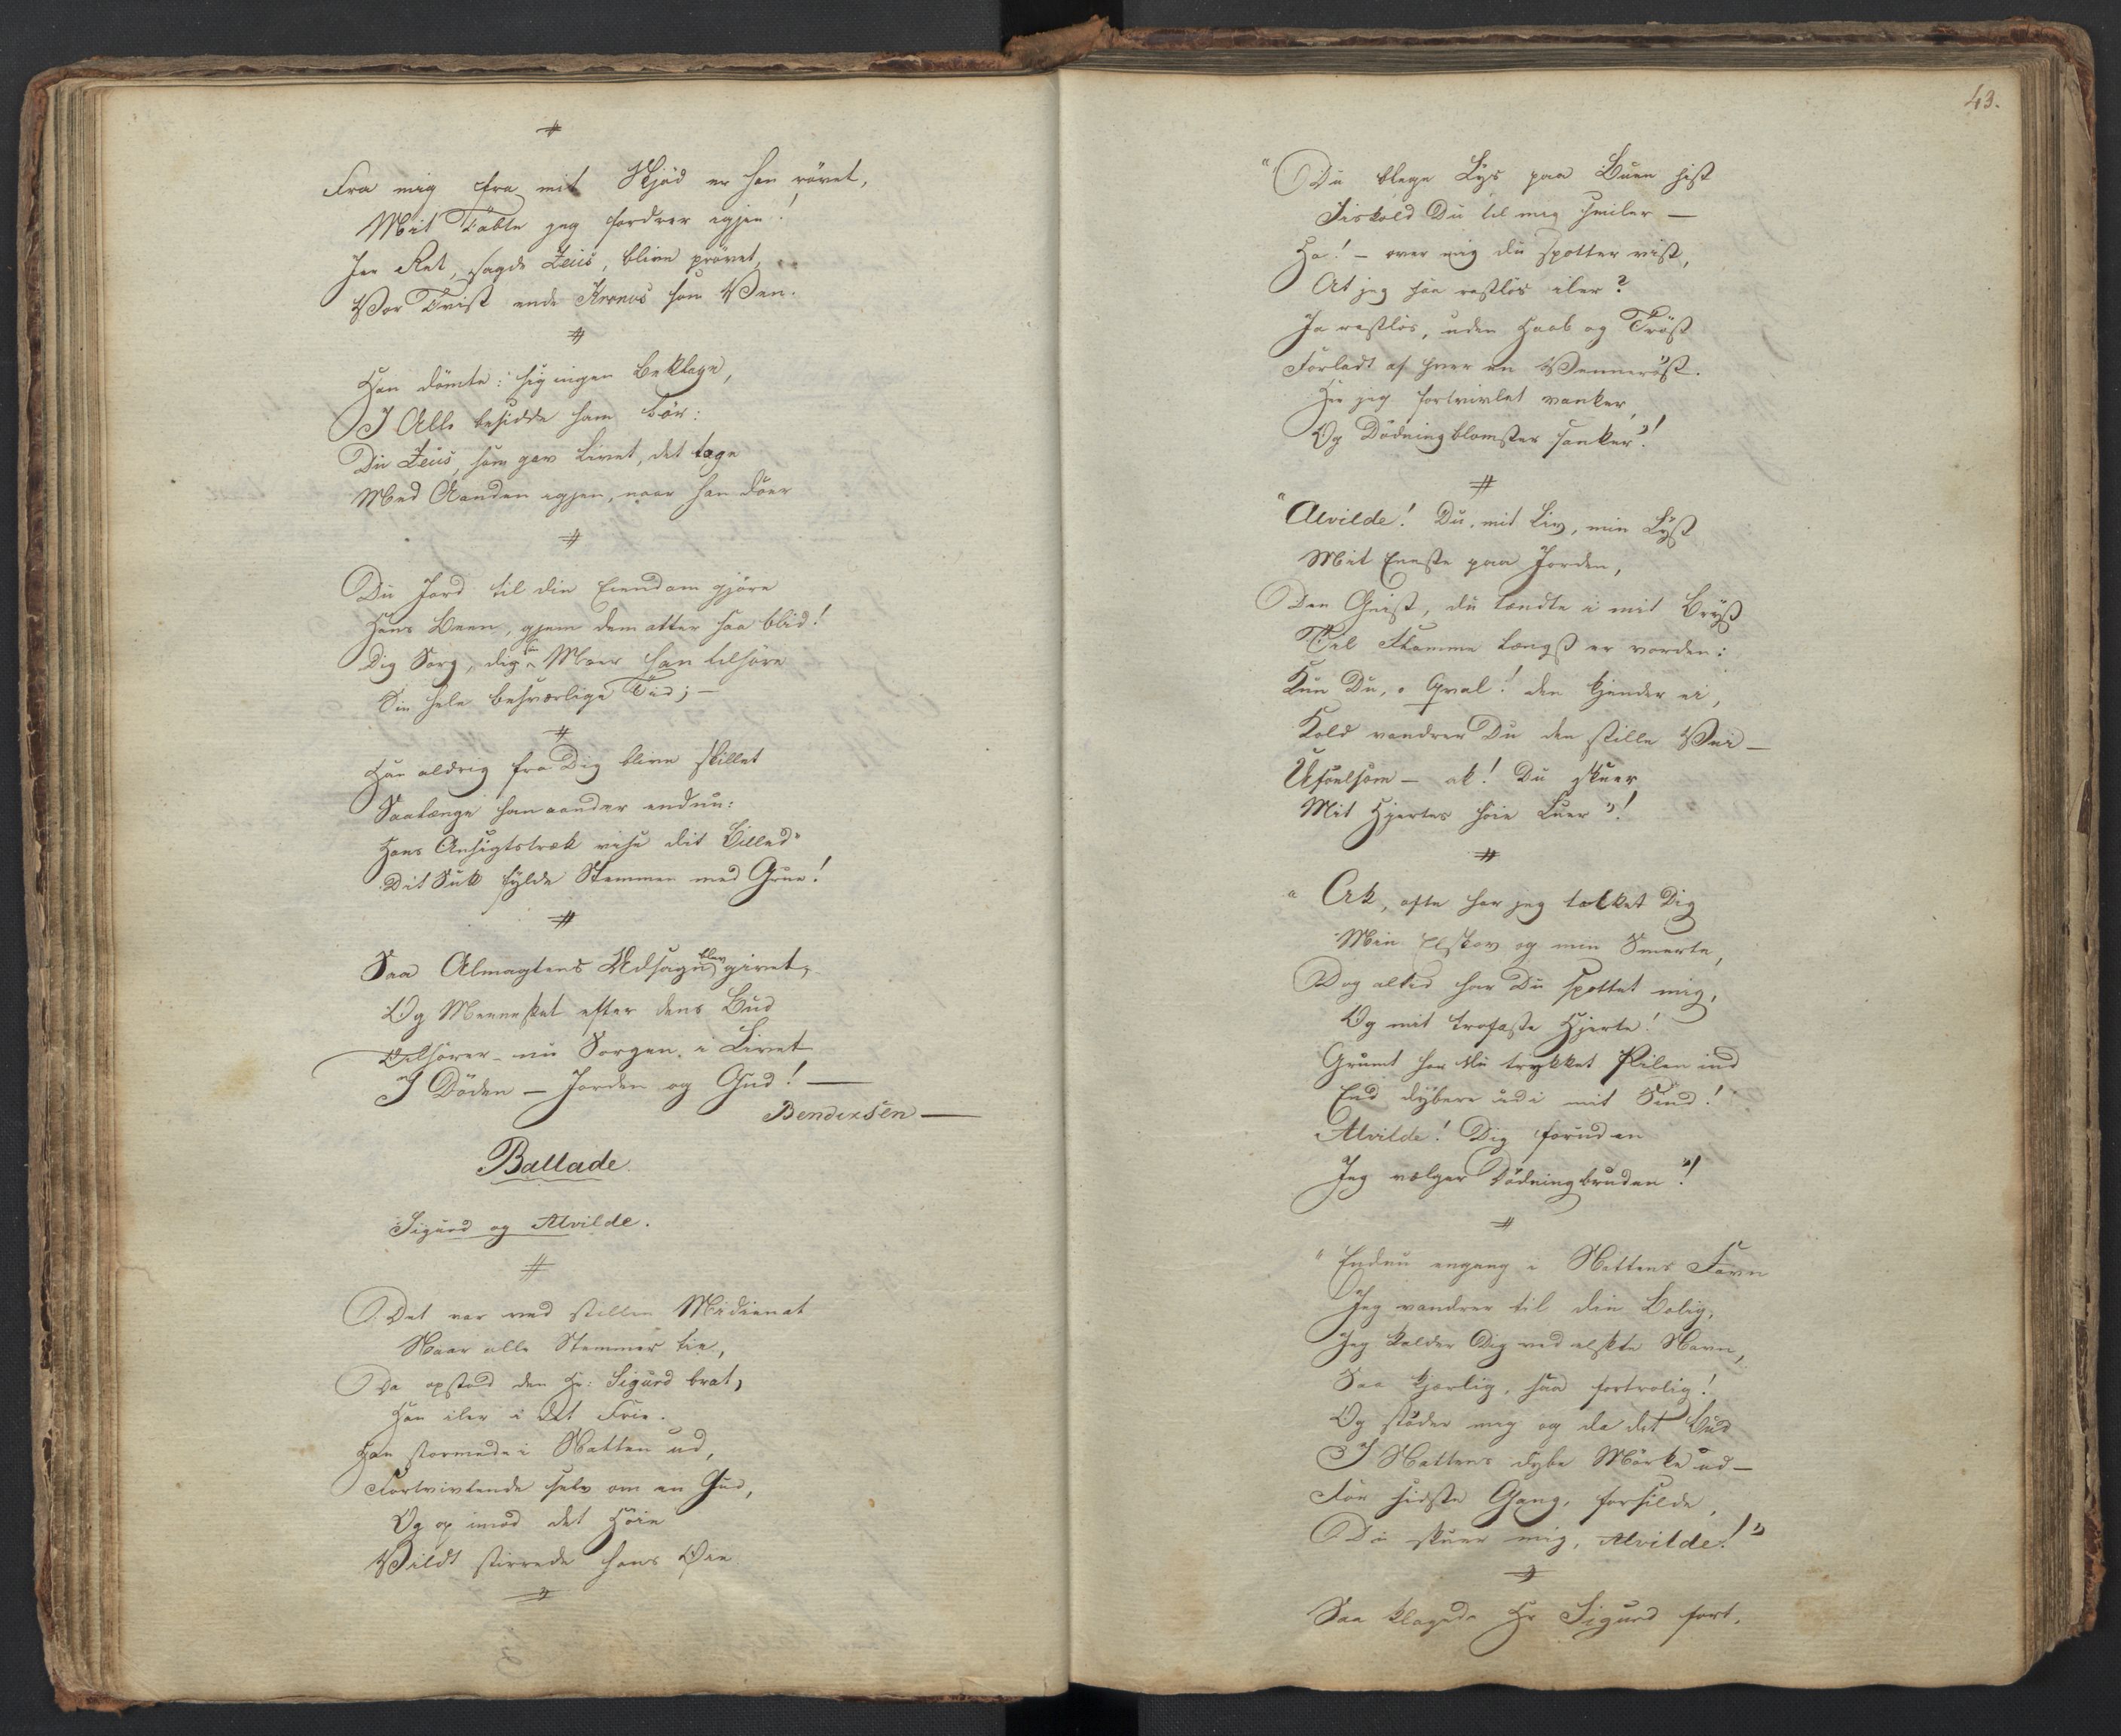 #
Fra mig fra mit Skjød er han røvet,
Mit Tabte jeg fordrer igjen!
Jer Ret, sagde Zeus, blive prøvet,
Vor Tvist ende Kronos som Ven.
#
Han dømte: sig ingen beklage,
I Alle besidde ham bør:
Du Zeus, som gav Livet, det tage
Med Aanden igjen, naar han døer
#
Du Jord til din Eiendom gjøre
Hans Been, gjem dem atter saa blid!
Dig Sorg, dig hans Moer han tilhøre
Sin hele besværlige Tid; —
#
Han aldrig fra Dig blive skillet
Saalænge han aander endnu:
Hans Ansigtstræk vise dit Billed
Dit Suk fylde Stemmen med Grue!
#
Saa Almagtens Udsagn blev givet,
Og Mennesket efter dens Bud
Tilhører nu Sorgen i Livet
I Døden — Jorden og Gud! —
Bendixsen —
Ballade
Sigurd og Alvilde.
#
Det var ved stillen Midienat
Naar alle Stemmer tie,
Da opstod den Hr: Sigurd brat,
Han iler i det Frie.
Han stormede i Natten ud,
Fortvivlende selv om en Gud,
Og op imod det Høie
Vildt stirrede hans Øie
#
43.
"Du blege Lys paa Buen hist
Iiskold Du til mig smiler —
Ha! — over mig du spotter vist,
At jeg saa rastløs iler?
Ja rastløs, uden Haab og Trøst
Forladt af hver en Vennerøst.
Her jeg fortvivlet vanker,
Og Dødningblomster sanker"!
#
"Alvilde! Du, mit Liv, min Lyst
Mit Eneste paa Jorden,
Den Gnist, du tændte i mit Bryst
Til Flamme længst er vorden:
Kun Du, o Qval! den kjender ei,
Kold vandrer Du den stille Vei —
Ufoelsom — ak! Du skuer
Mit Hjertes høie Luer"!
#
"Ak, ofte har jeg tolket Dig
Min Elskov og min Smerte,
Dog altid har Du spottet mig,
Og mit trofaste Hjerte!
Grumt har Du trykket Pilen ind
End dybere ud i mit Sind!
Alvilde! Dig foruden
Jeg vælger Dødningbruden"!
#
"Endnu engang i Nattens Favn
Jeg vandrer til din Bolig,
Jeg kalder Dig ved elskte Navn,
Saa kjærlig, saa fortrolig!
Og støder mig og da dit Bud
I Nattens dybe Mørke ud —
For sidste Gang, forsilde,
Du skuer mig, Alvilde!"
#
Saa klagede Hr Sigurd fort,